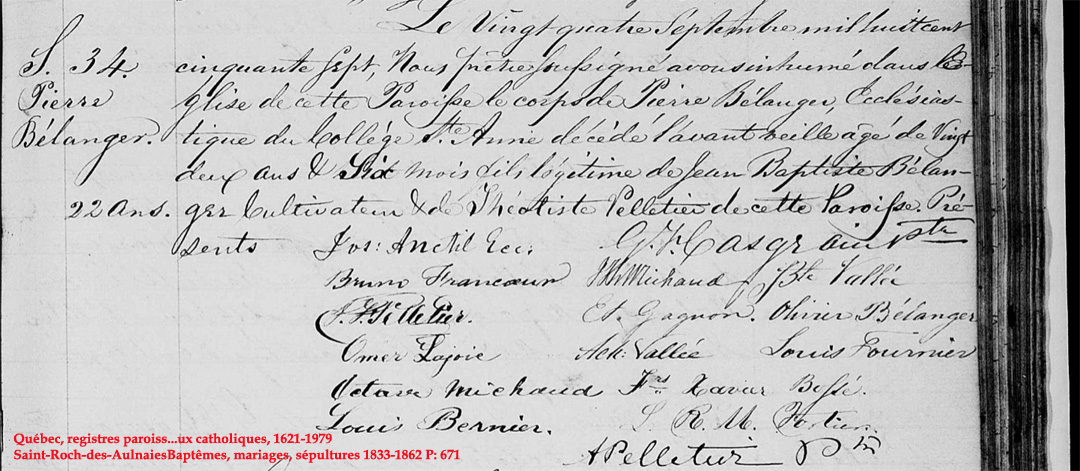 Le Vingt quatre Septembre mil huit cent
S. 34. cinquante Sept, Nous prêtre Soussigné avons inhumé dans l'E-
Pierre glise de cette Paroisse le corps de Pierre Bélanger, Ecclésias-
Bélanger. tique du Collége Ste. Anne décédé l'avant veille agé de Vingt
deux ans & Six mois fils légitime de Jean Baptiste Bélan-
22 Ans. ger Cultivateur & de Théotiste Pelletier de cette Paroisse. Pré-
sents Jos: Anctil Ecc. G. F. Casgrain Ptre
Bruno Francoeur Michaud Bte Vallée
Pelletier. Et. Gagnon. Olivier Bélanger
Omer Lajoie Ach: Vallée Louis Fournier
Octave Michaud Frs Xavier Bessé.
Louis Bernier. S. R. M.
A Pelletier
Québec, registres paroiss...ux catholiques, 1621-1979
Saint-Roch-des-AulnaiesBaptêmes, mariages, sépultures 1833-1862 P: 671